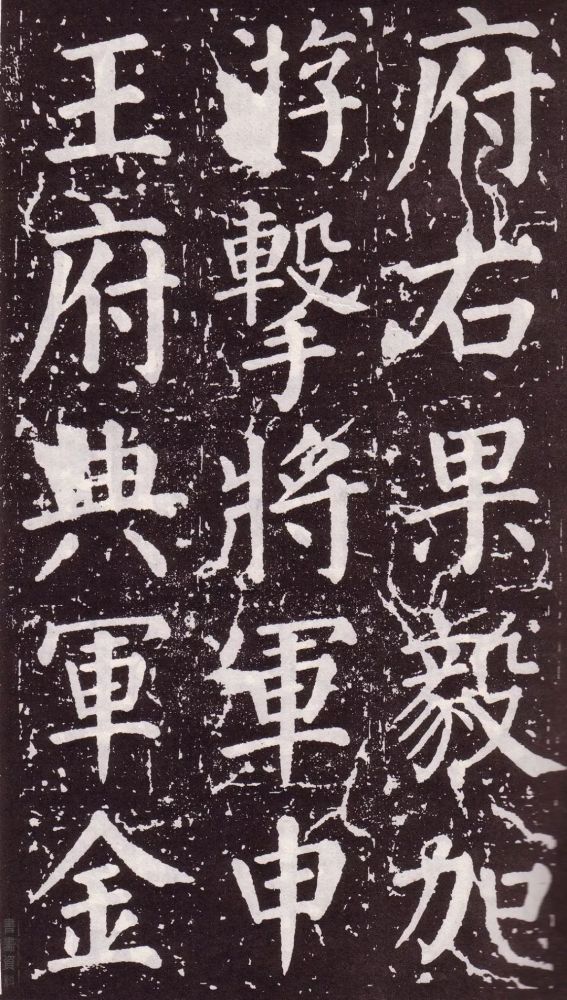 府右果毅加
游擊將軍申
王府典軍金